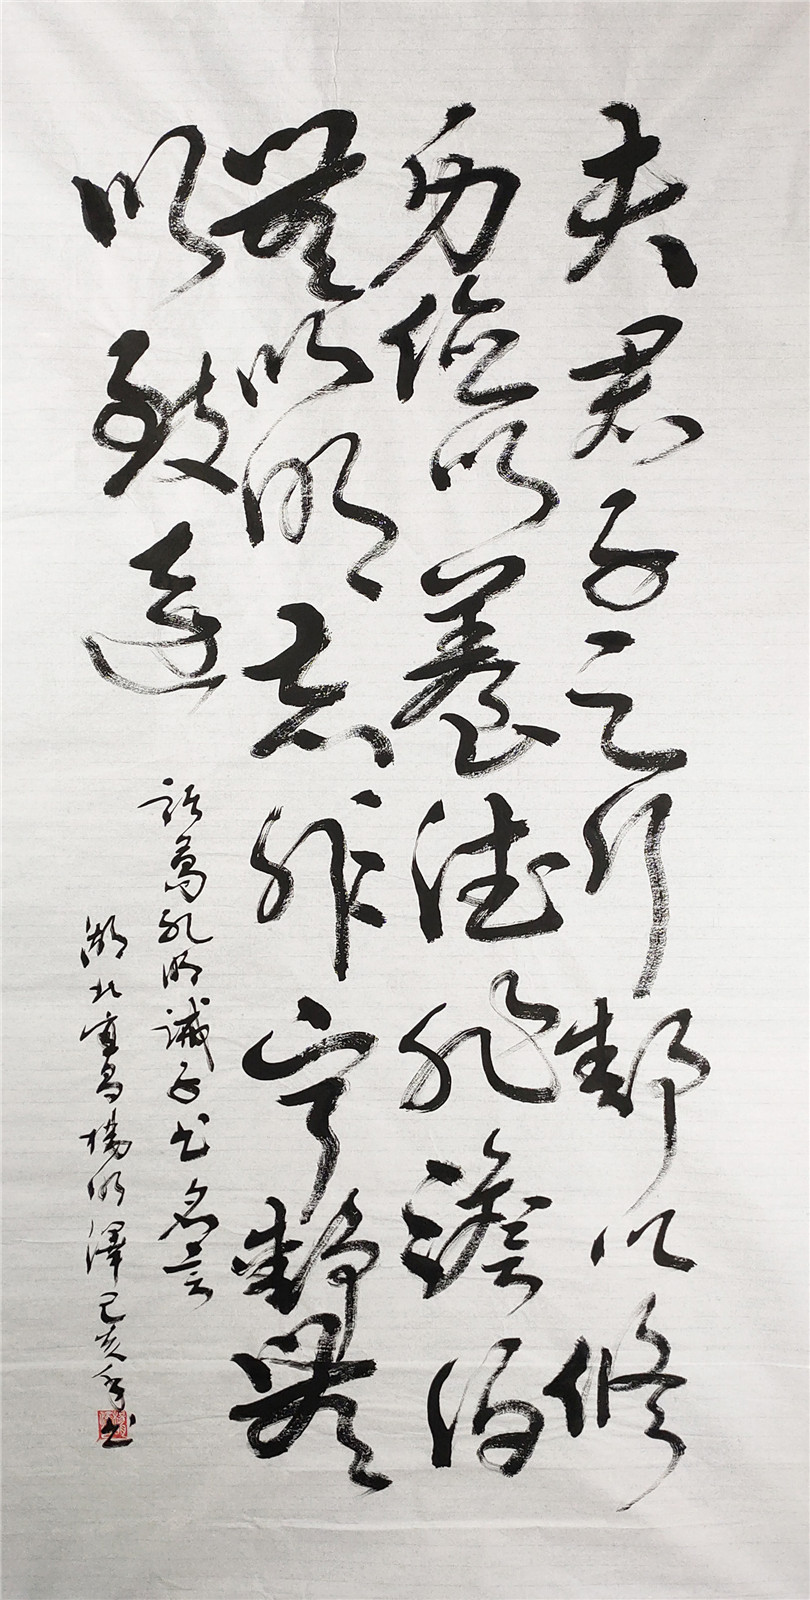 夫君子之行静以修
身俭以養德非澹泊
無以明志非宁静無
以致達
诸葛孔明诫子书名言
湖北宜昌楊明澤己亥年书